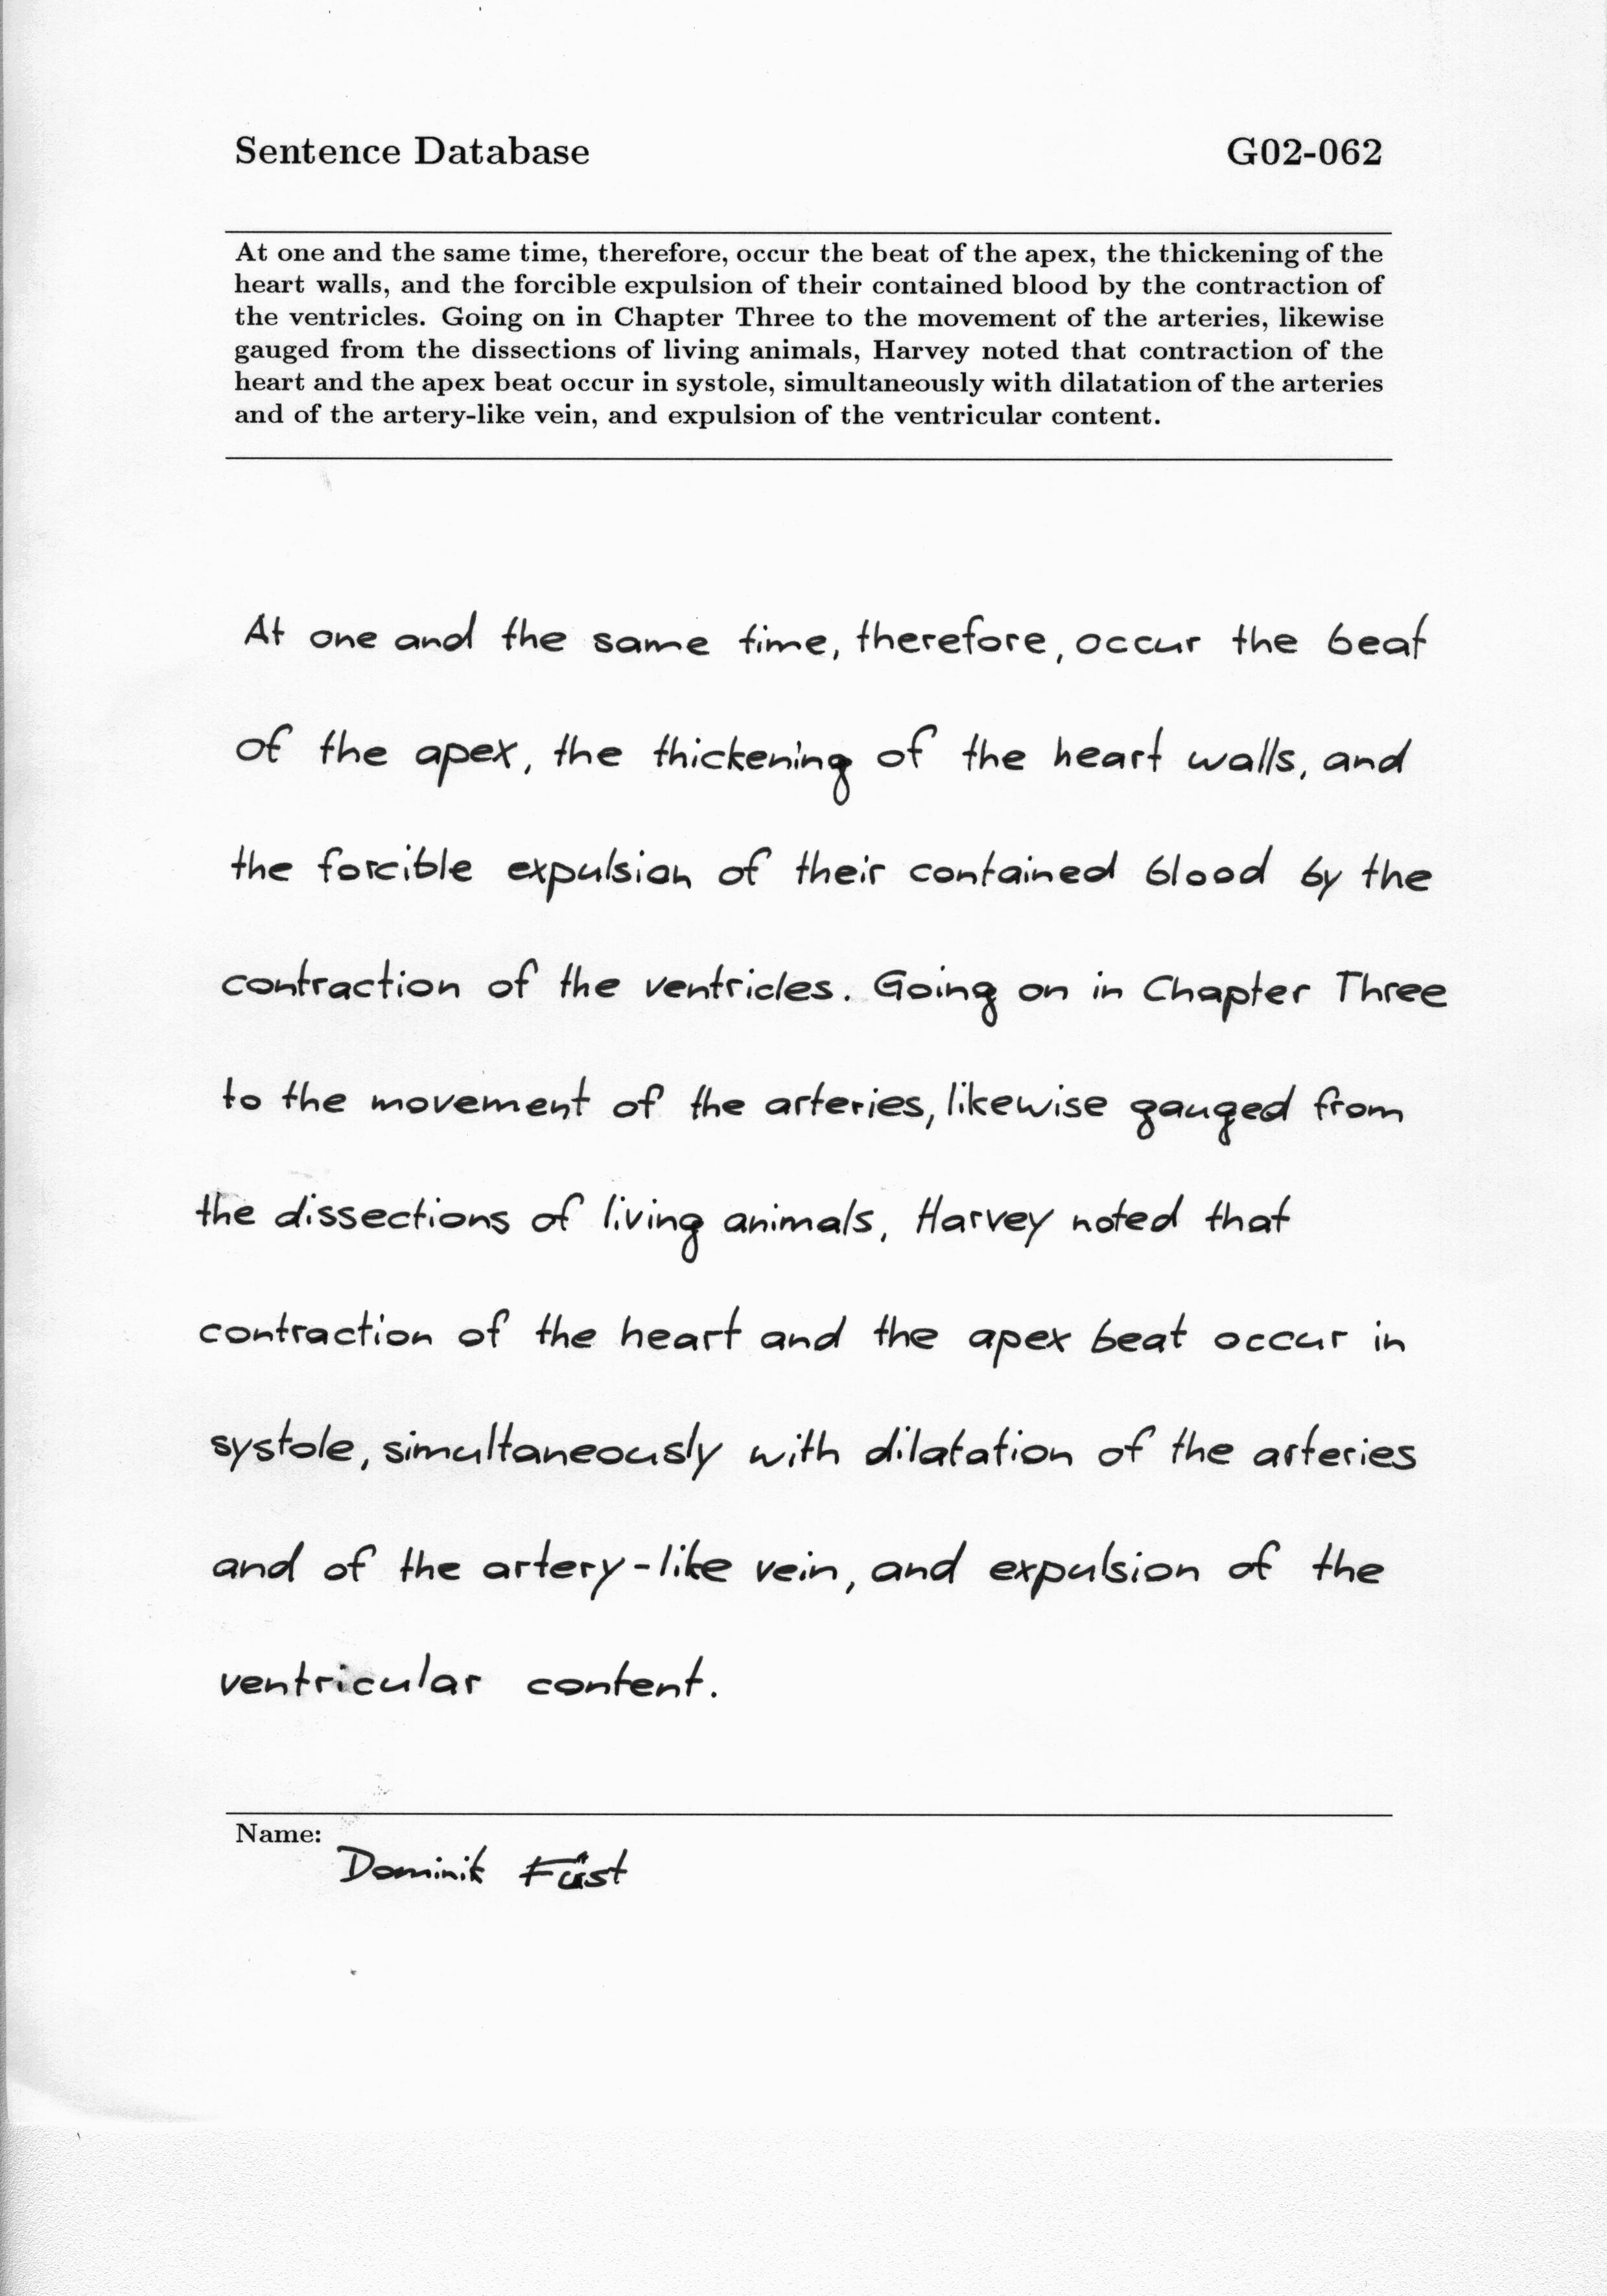 Sentence Database G02-062
At one and the same time, therefore, occur the beat of the apex, the thickening of the
heart walls, and the forcible expulsion of their contained blood by the contraction of
the ventricles. Going on in Chapter Three to the movement of the arteries, likewise
gauged from the dissections of living animals, Harvey noted that contraction of the
heart and the apex beat occur in systole, simultaneously with dilatation of the arteries
and of the artery-like vein, and expulsion of the ventricular content.
At one and the same time, therefore, occur the beat
of the apex, the thickening of the heart walls, and
the forcible expulsion of their contained blood by the
contraction of the ventricles. Going on in Chapter Three
to the movement of the arteries, likewise gauged from
the dissections of living animals, Harvey noted that
contraction of the heart and the apex beat occur in
systole, simultaneously with dilatation of the arteries
and of the artery-like vein, and expulsion of the
ventricular content.
Name:
Dominik